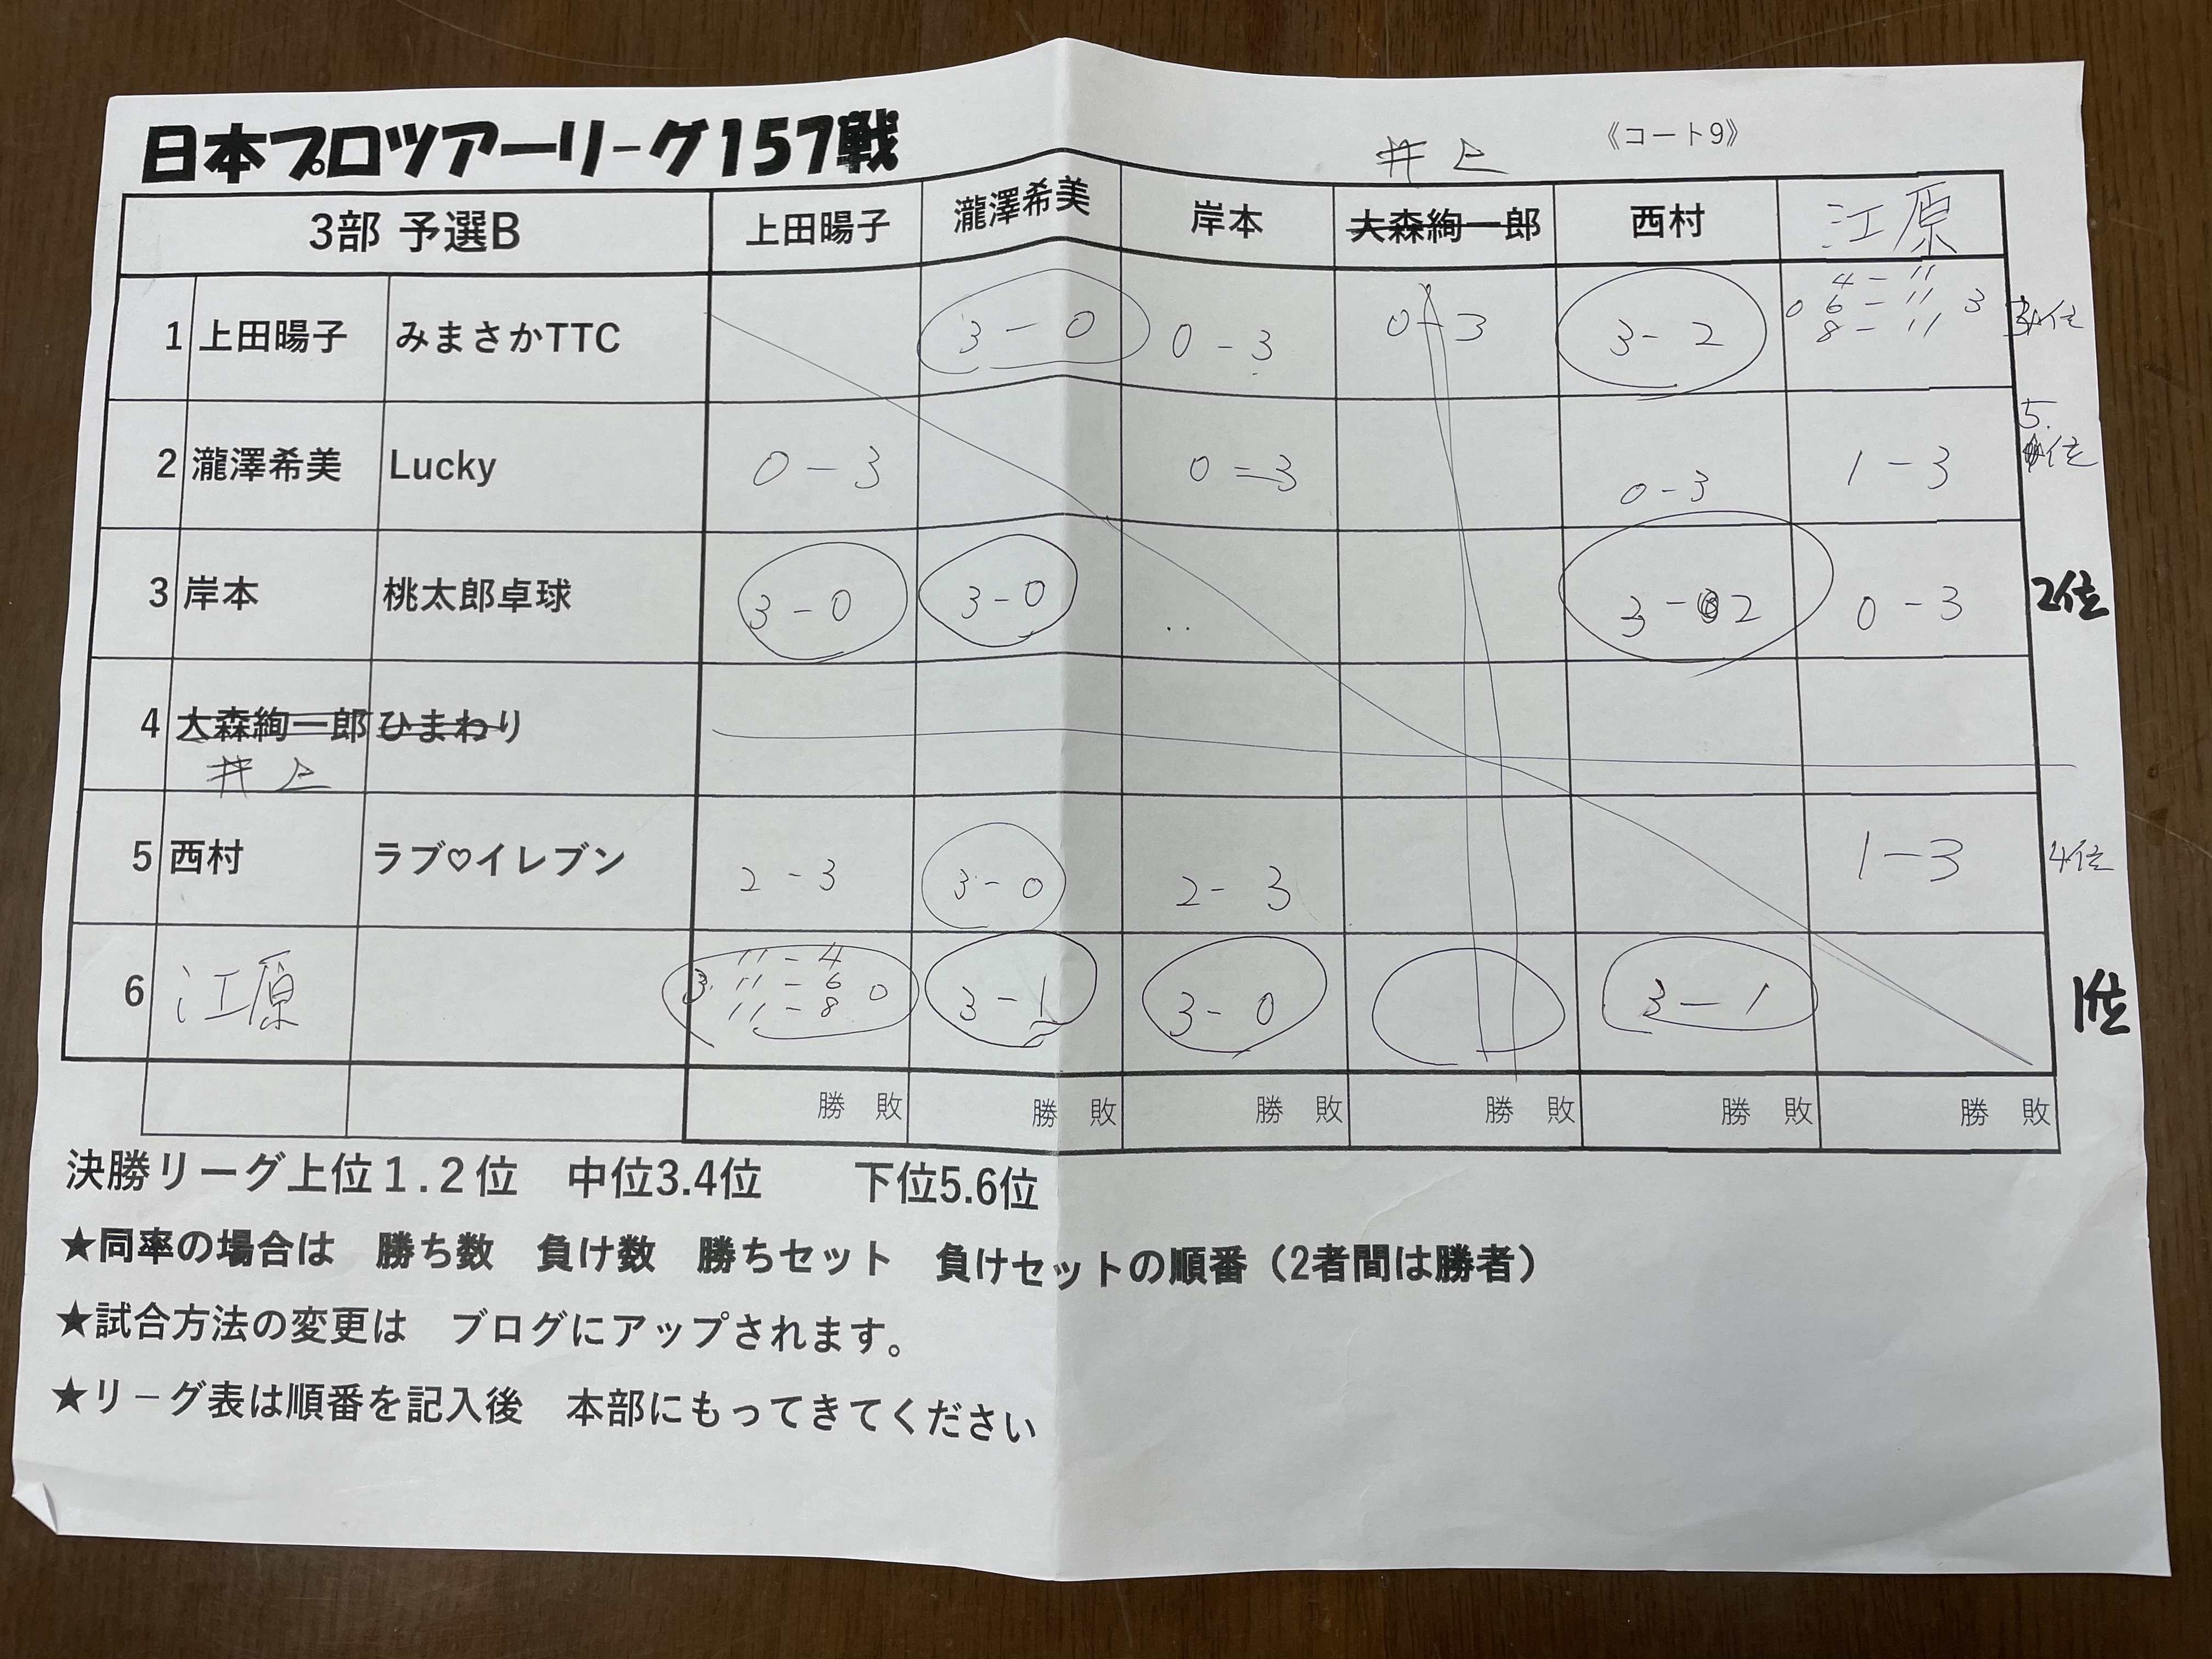 日本プロツアーリーグ157戦
《コート9》
井上
3部 予選B 上田暘子 瀧澤希美 岸本 大森絢一郎 西村 江原
4 - 11
1 上田暘子 みまさかTTC 3 - 0 0 - 3 0 - 3 3 - 2 0 6 - 11 3 3位
8 - 11
5.
2 瀧澤希美 Lucky 0 - 3 0 = 3 0 - 3 1 - 3 位
3 岸本 桃太郎卓球 3 - 0 3 - 0 3 - 2 0 - 3 2位
4 大森絢一郎 ひまわり
井上
5 西村 ラブ♡イレブン 2 - 3 3 - 0 2 - 3 1 - 3 4位
11 - 4
6 江原 3 11 - 6 0 3 - 1 3 - 0 3 - 1 1位
11 - 8
勝 敗 勝 敗 勝 敗 勝 敗 勝 敗 勝 敗
決勝リーグ上位1.2位 中位3.4位 下位5.6位
★同率の場合は 勝ち数 負け数 勝ちセット 負けセットの順番（2者間は勝者）
★試合方法の変更は ブログにアップされます。
★リーグ表は順番を記入後 本部にもってきてください